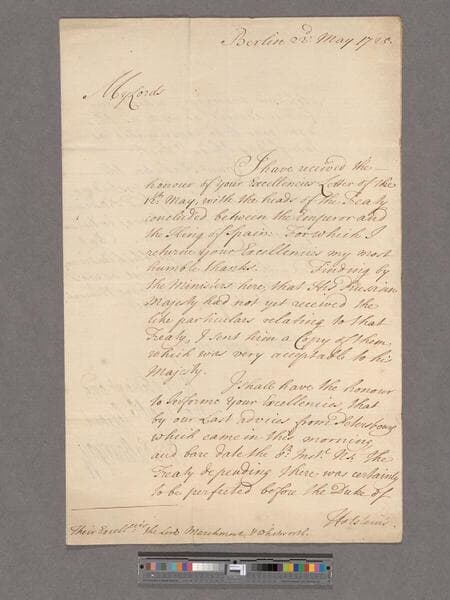 Berlin 22d. May 1725.
My Lords
I have received the
honour of your Excellencies Letter of the
12th. May, with the heads of the Treaty
concluded between the Emperor and
the King of Spain: For which I
returne your Excellencies my most
humble thanks. Finding by
the Ministers here, that His Prussian
Majesty had not yet received the
like particulars relating to that
Treaty, I sent him a Copy of them,
which was very acceptable to his
Majesty.
I shall have the honour
to Informe your Excellencies, that
by our Last advices from Petersbourg
which came in this morning
and bare date the 6th. Inst. N.S. the
Treaty depending there was certainly
to be perfected before the Duke of
Holsteins
Their Excellencies the Lords Marchmont & Whitworth.